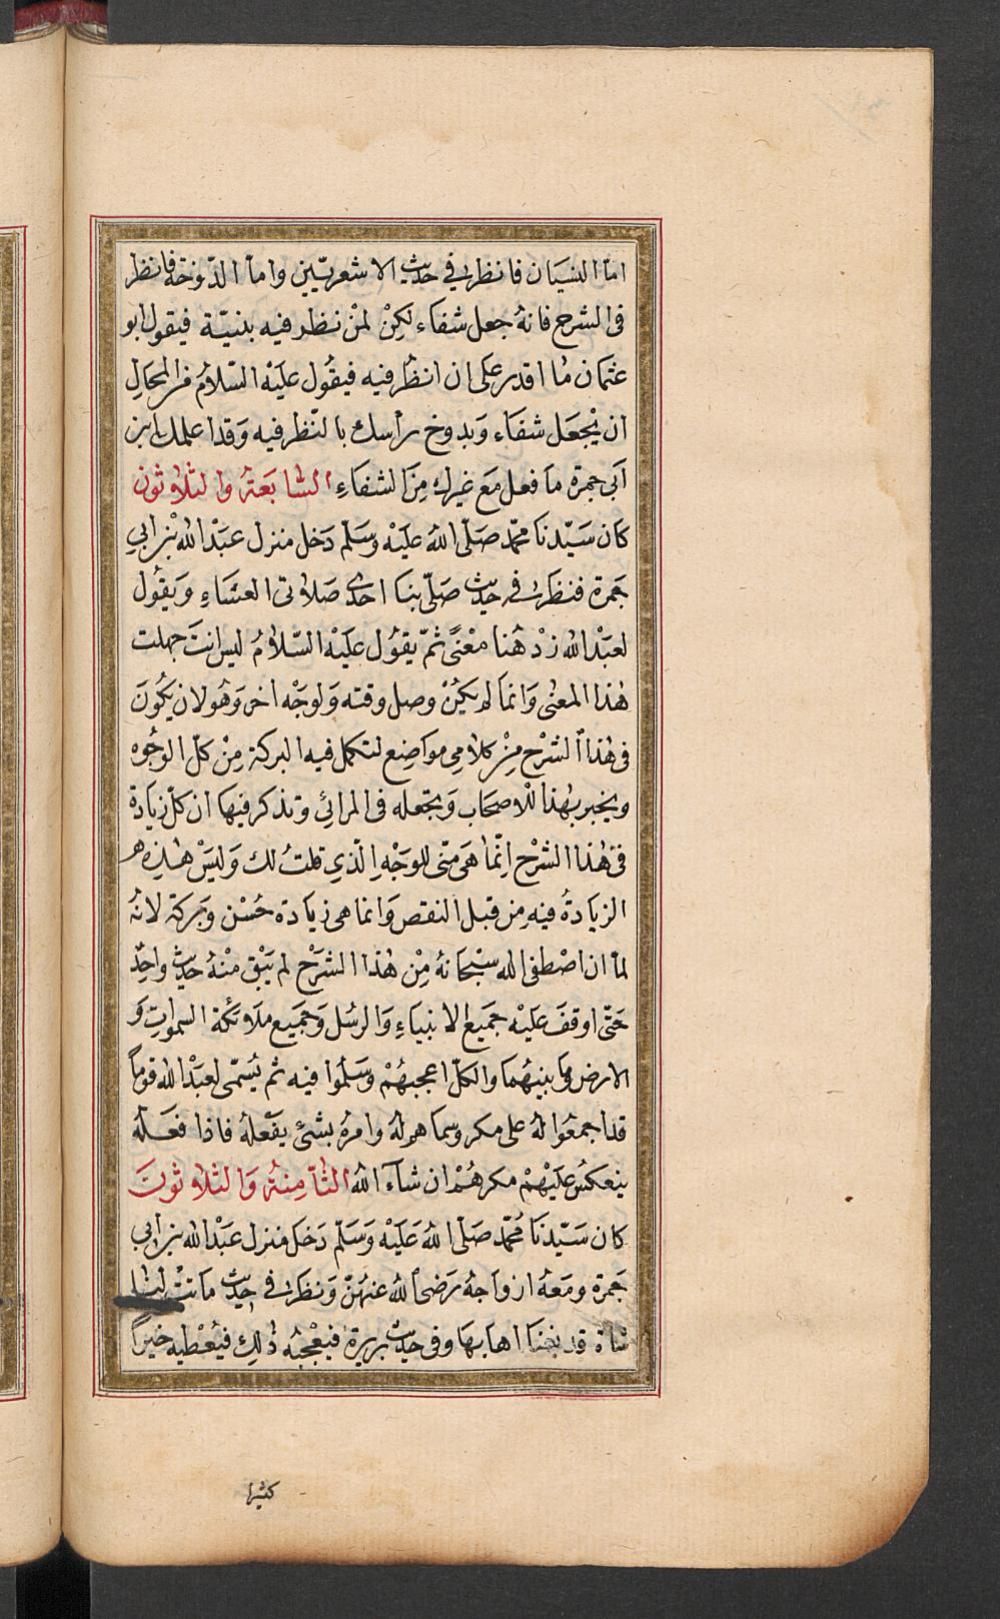 اما النسيان فانظر في حديث الاشعريّين واما الدّوخة فانظر
في الشرح فانهُ جعل شفاء لكِنْ لمنْ نظر فيه بنيّة فيقول ابو
عثمان مُا اقدر على ان انظر فيه فيقُول عليْه السّلامُ فرالمحالِ
ان يْجعَل شفَاء وَيدوخ رأسك بالنّظر فيه وَقد اعلمك ابن
اَبي جمرة ماَ فعل مَع غيرك مِنَ الشفَاءِ السّابعَة والثلاثون
كان سَيّدنَا محمّد صَلّى اللهُ عليْه وسَلّم دَخل منزل عبْد الله بْن ابي
جَمرة فنظر في حديث صَلّى بنا احدى صَلاتى العشَاءِ وَيقوُل
لعبْد الله زدْ هُنا معْنىً ثمّ يقوُل عليْه السّلامُ ليس انتَ جهلت
هٰذا المعنى وَانماَ لم يكنْ وصل وقته وَلوجْه اخر وَهُو لان يكوُنَ
في هٰذا الشرْح مِنْ كلامي موَاضِع لتكمل فيه البركة مِنْ كلّ الوجُوه
ويخبر بهٰذا للاصحَاب وَيجعله في المرائي وتذكر فيها ان كلّ زيادة
في هٰذا الشرْح اِنّما هَى منّى للوجْه الّذي قلتُ لك وَليسْ هٰذه
الزيادةُ فيه مِن قبل النقص وَانما هى زيادة حُسْن وَبركة لانهُ
لماّ ان اصْطفى الله سبْحانهُ مِنْ هٰذا الشرْح لم يَبْق منْهُ حديث واحِدٌ
حَتّى اوقفَ عليْه جميَع الانبياءِ وَالرسُل وَجميَع ملائكة السموات وَ
الارض وما بينهُما والكلّ اعجبهُمْ وسَلّموُا فيه ثم يُسَمّى لعبَدْ الله قوماً
قد اجمعُوا لهُ على مكر وسماهم لهُ وامرهُ بشئ يفْعلهُ فاذا فعَلهُ
ينعكسُ عليْهِمْ مكرهُمْ ان شآءَ اللهُ الثّامِنةُ وَالثلاثونَ
كان سَيّدنَا مُحمّد صَلّى اللهُ عَليْه وَسَلّم دَخل منزل عبْد الله بْن ابي
جَمرة ومَعهُ ازواجهُ رَضى اللهُ عنهُنّ وَنظر في حديث ماتتْ لنا
شاة قدبغنا اهابها وفي حديث بريرة فيعْجبهُ ذٰلك فيُعْطيه خيراً
كثيرا